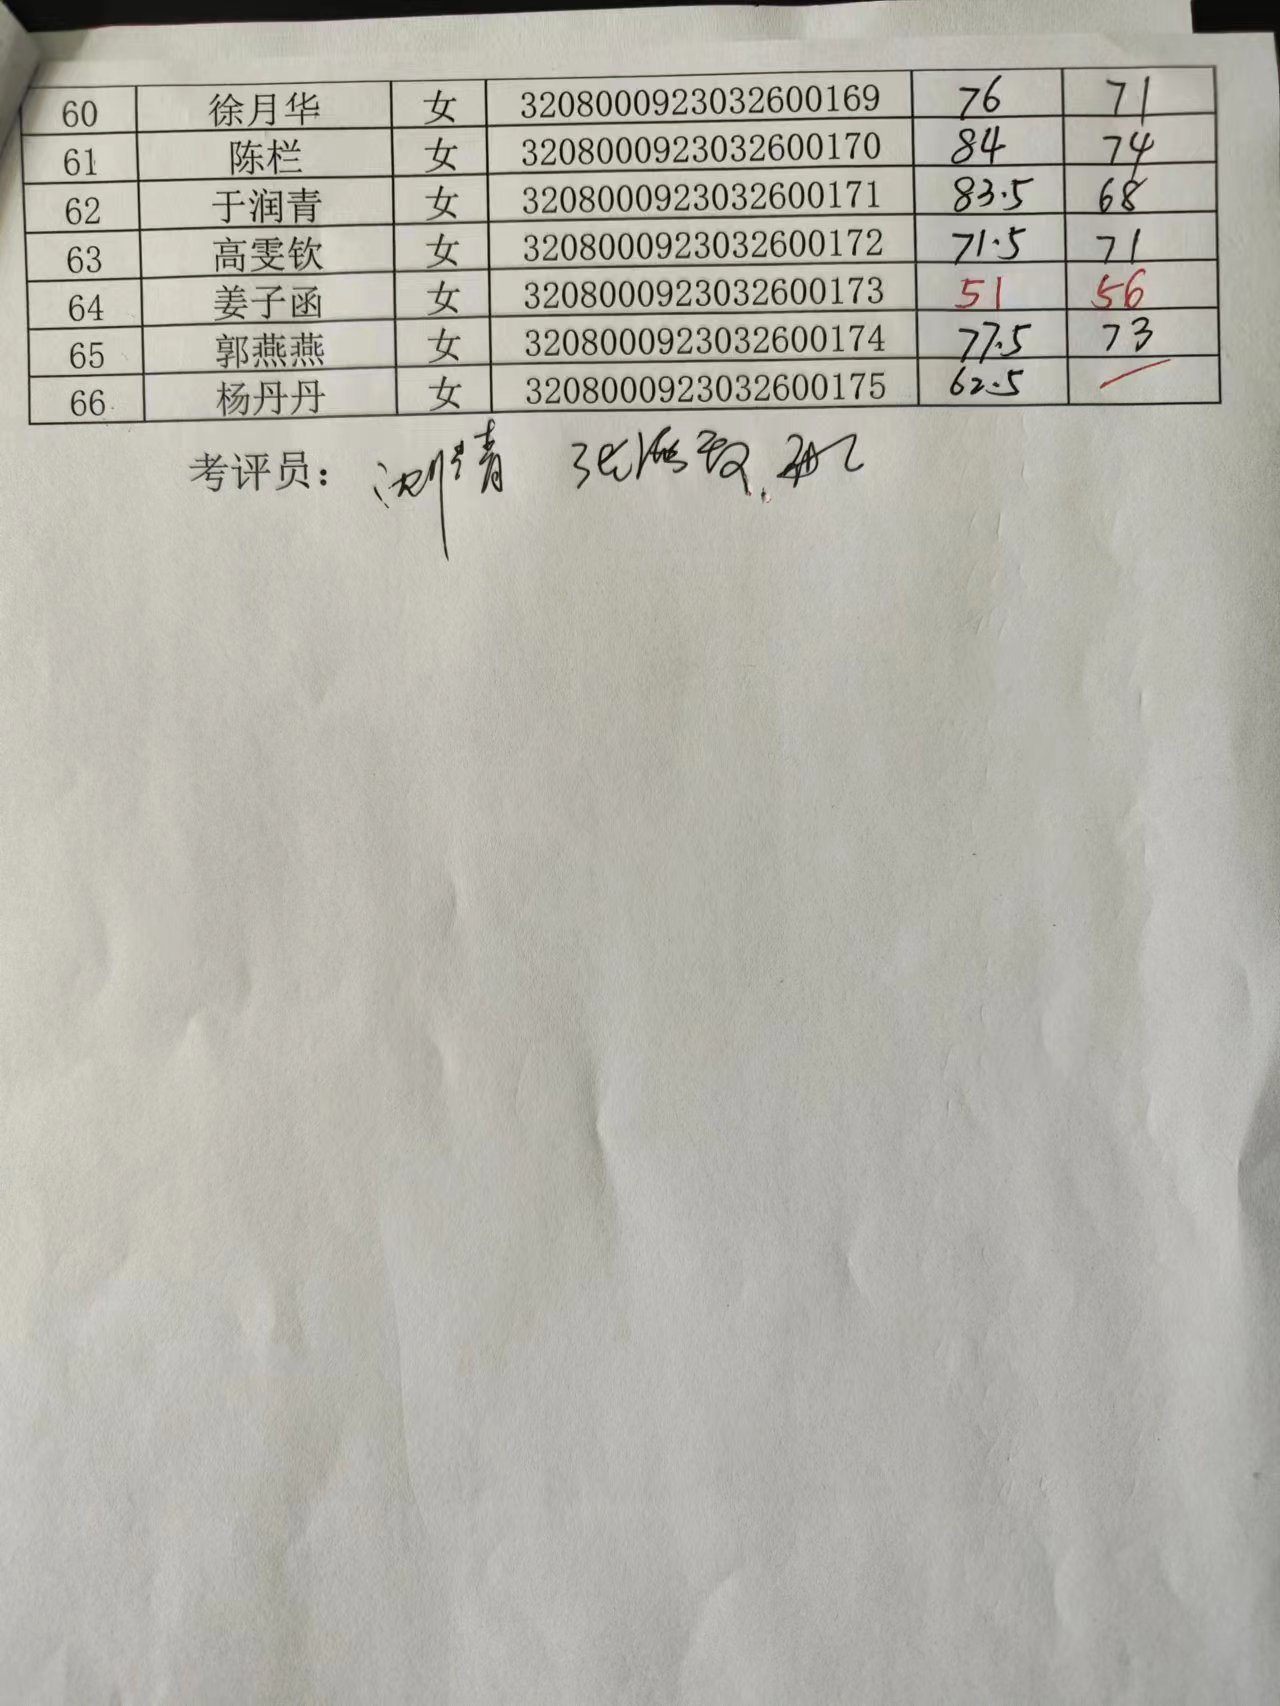 60 徐月华 女 3208000923032600169 76 71
61 陈栏 女 3208000923032600170 84 74
62 于润青 女 3208000923032600171 83.5 68
63 高雯钦 女 3208000923032600172 71.5 71
64 姜子函 女 3208000923032600173 51 56
65 郭燕燕 女 3208000923032600174 77.5 73
66 杨丹丹 女 3208000923032600175 62.5
考评员：